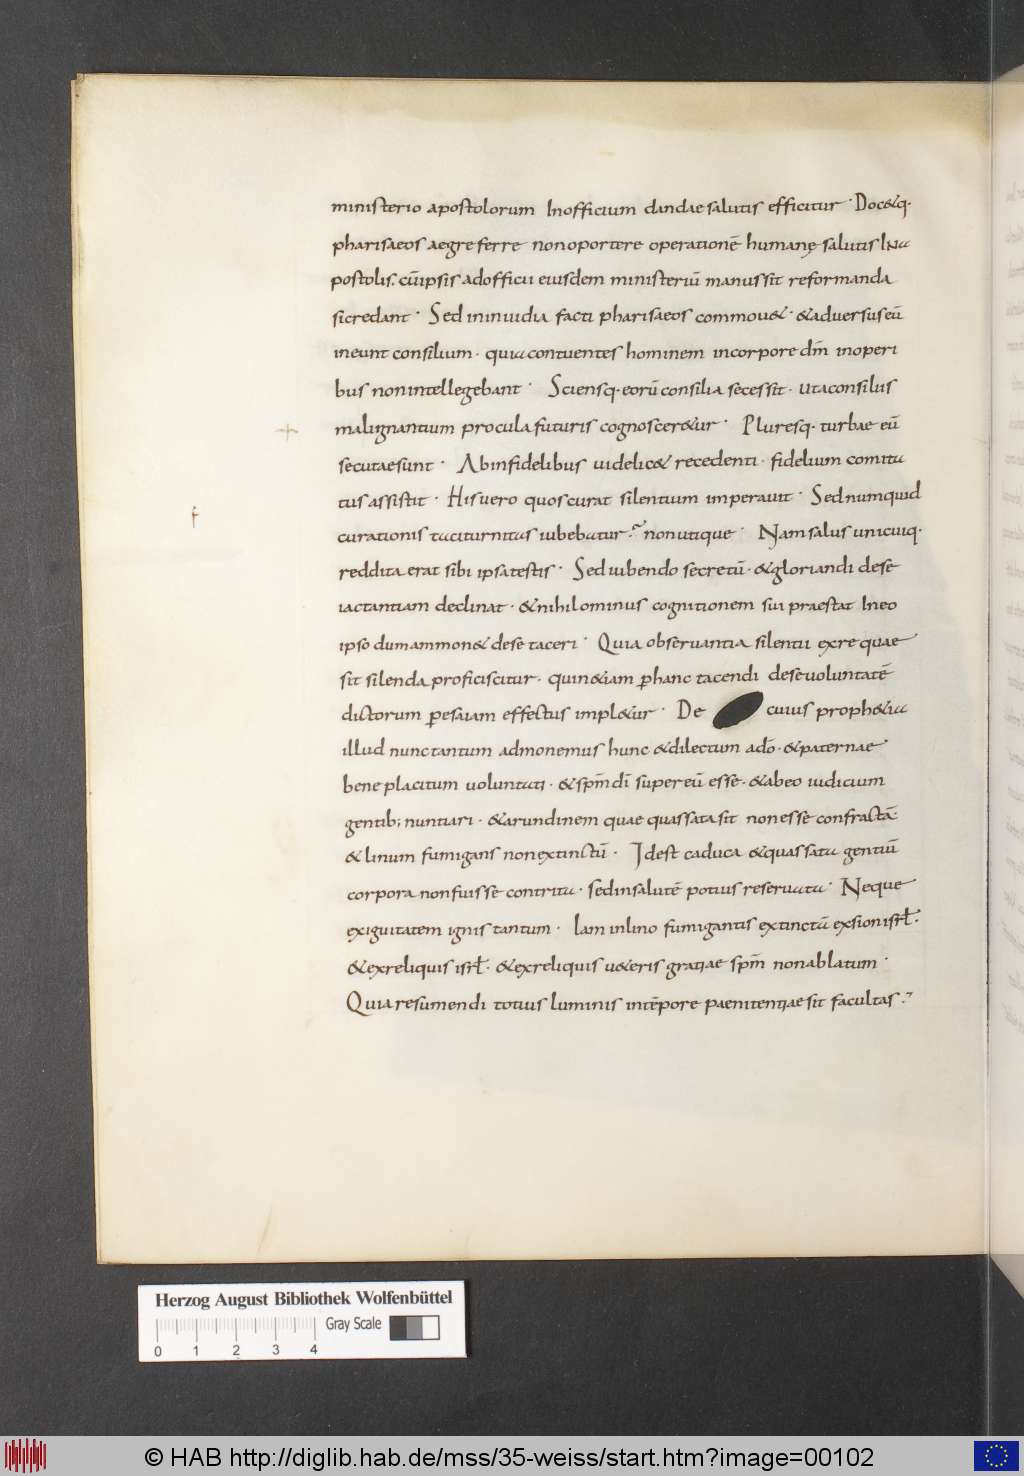 ministerio apostolorum Inofficium dandae salutis efficitur · Doc&q·
pharisaeos aegre ferre non oportere operationē humanę salutis Ina
postolis · cū ipsis ad officii eiusdem ministeriū manus sit reformanda
si credant · Sed in inuidia facti pharisaeos commou& · & aduersus eū
ineunt consilium · quia contuentes hominem in corpore dm̄ in operi
bus non intellegebant · Sciensq· eorū consilia secessit · ut a consiliis
malignantium procul a futuris cognoscer&ur · Pluresq· turbae eū
secutae sunt · Ab infidelibus uidelic& recedenti · fidelium comita
tus assistit · His uero quos curat silentium imperauit · Sed numquid
curationis taciturnitas iubebatur? non utique · Nam salus unicuiq·
reddita erat sibi ipsa testis · Sed iubendo secretū · & gloriandi de se
iactantiam declinat · & nihilominus cognitionem sui praestat In eo
ipso dum ammon& de se taceri · Quia obseruantia silentii ex re quae
sit silenda proficiscitur · quin &iam p hanc tacendi de se uoluntatē
dictorum p esaiam effectus impl&ur · De cuius proph&ia
illud nunc tantum admonemus hunc & dilectum a dō · & paternae
bene placitum uoluntati · & spm̄ dī super eū esse · & ab eo iudicium
gentib; nuntiari · & arundinem quae quassata sit non esse confractā
& linum fumigans non extinctū · Id est caduca & quassata gentiū
corpora non fuisse contrita · sed in salutē potius reseruata · Neque
exiguitatem ignis tantum · Iam in lino fumigantis extinctū ex sion isrł·
& ex reliquis isrł · & ex reliquis u&eris gratiae spm̄ non ablatum ·
Quia resumendi totius luminis in tēpore paenitentiae sit facultas ·
Herzog August Bibliothek Wolfenbüttel
Gray Scale
0 1 2 3 4
© HAB http://diglib.hab.de/mss/35-weiss/start.htm?image=00102